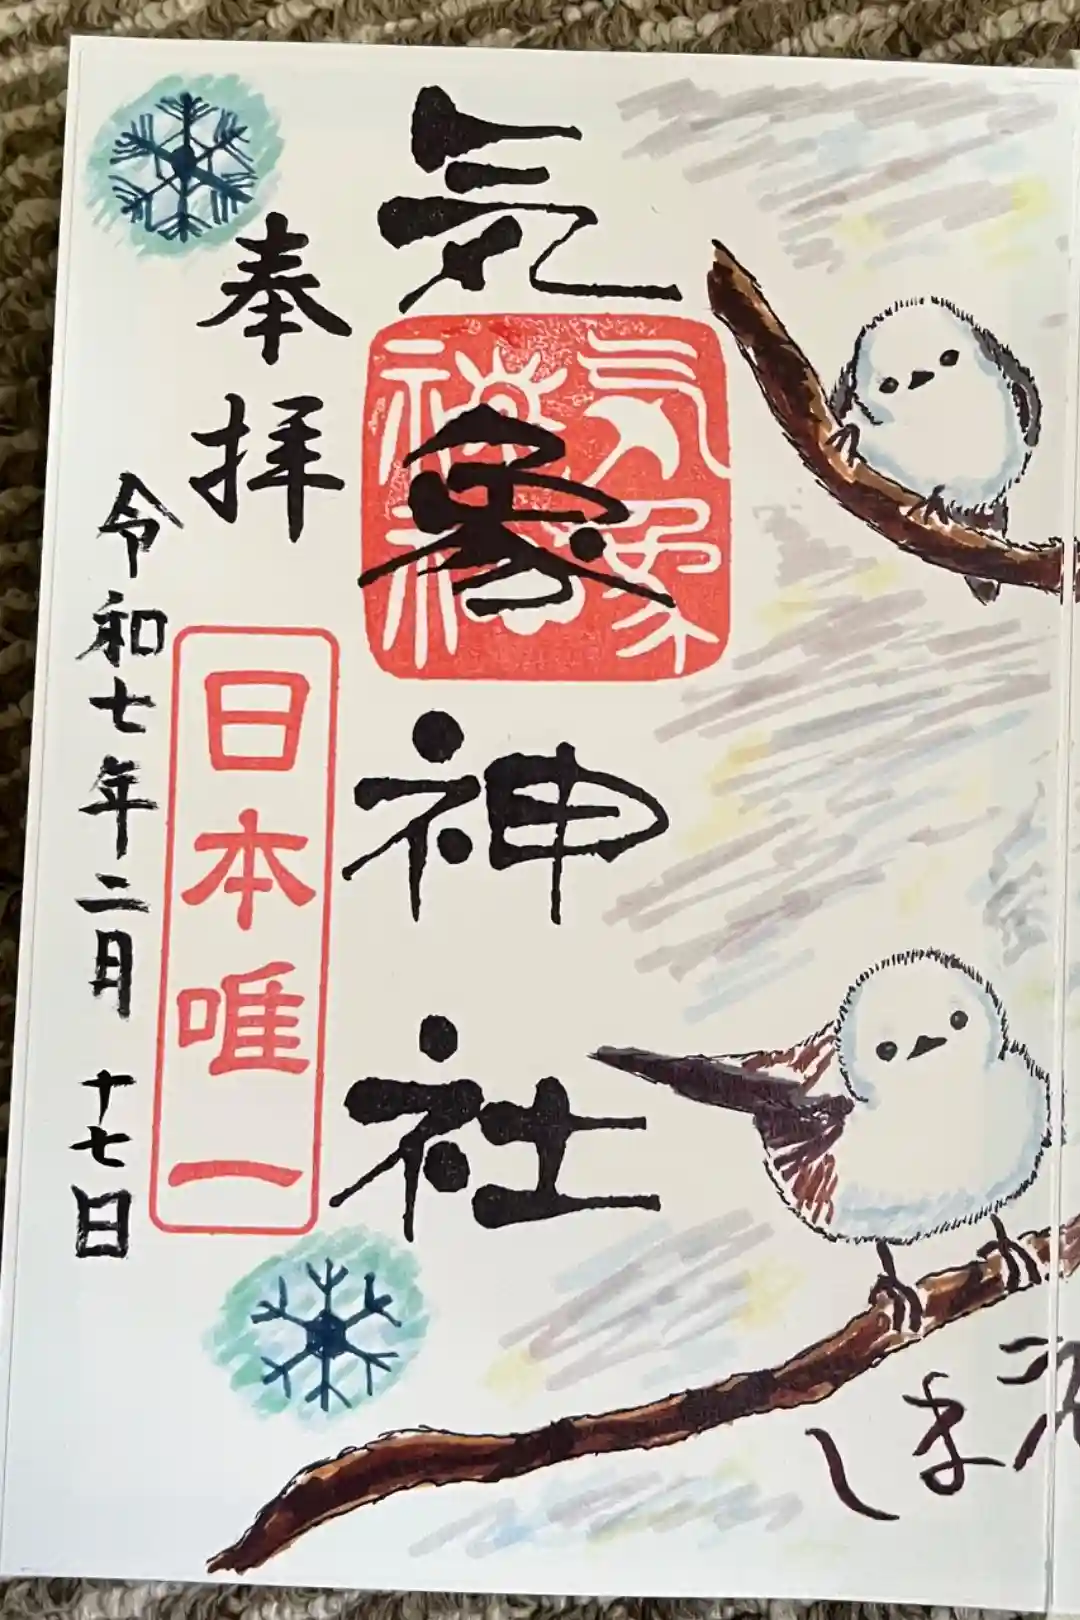 気象神社
気象
神社
奉拝
日本唯一
令和七年二月十七日